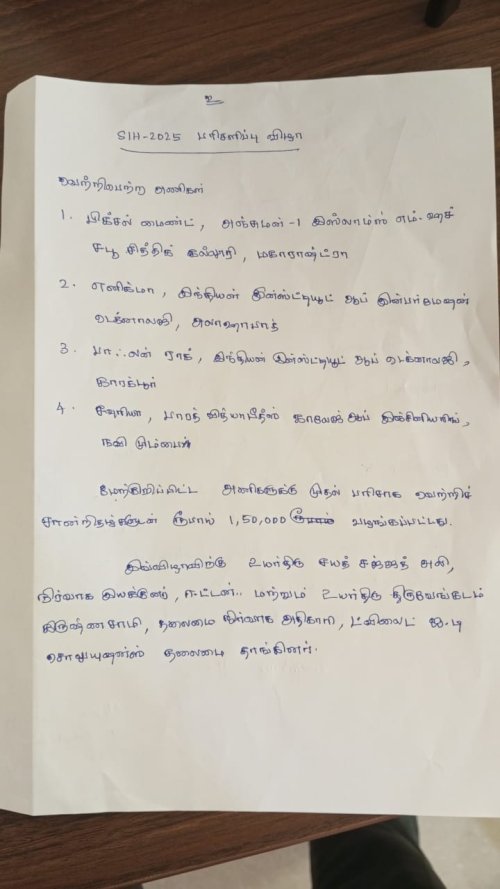 உ
SIH-2025 பரிசளிப்பு விழா
வெற்றிபெற்ற அணிகள்
1. பிக்சல் மைண்ட், அஞ்சுமன்-I இஸ்லாம்ஸ் எம்.எச்
சபூ சித்திக் கல்லூரி, மகாராஷ்ட்ரா
2. எனிக்மா, இந்தியன் இன்ஸ்டிடியூட் ஆப் இன்பர்மேஷன்
டெக்னாலஜி, அலாஹாபாத்
3. பா..லன் ராக், இந்தியன் இன்ஸ்டிடியூட் ஆப் டெக்னாலஜி,
காரக்பூர்
4. பாரத் வித்யாபீதீஸ் காலேஜ் ஆப் இஞ்சினியரிங்,
நவி மும்பை
மேற்குறிப்பிட்ட அணிகளுக்கு முதல் பரிசாக வெற்றிச்
சான்றிதழ்களுடன் ரூபாய் 1,50,000 வழங்கப்பட்டது.
இவ்விழாவிற்கு உயர்திரு சயத் சஜ்ஜத் அலி,
நிர்வாக இயக்குனர், ஈட்டன்.. மற்றும் உயர்திரு திருவேங்கடம்
கிருஷ்ணசாமி, தலைமை நிர்வாக அதிகாரி, ட்விலைட் ஐ.டி
சொலுயுஷன்ஸ் தலைமை தாங்கினர்.